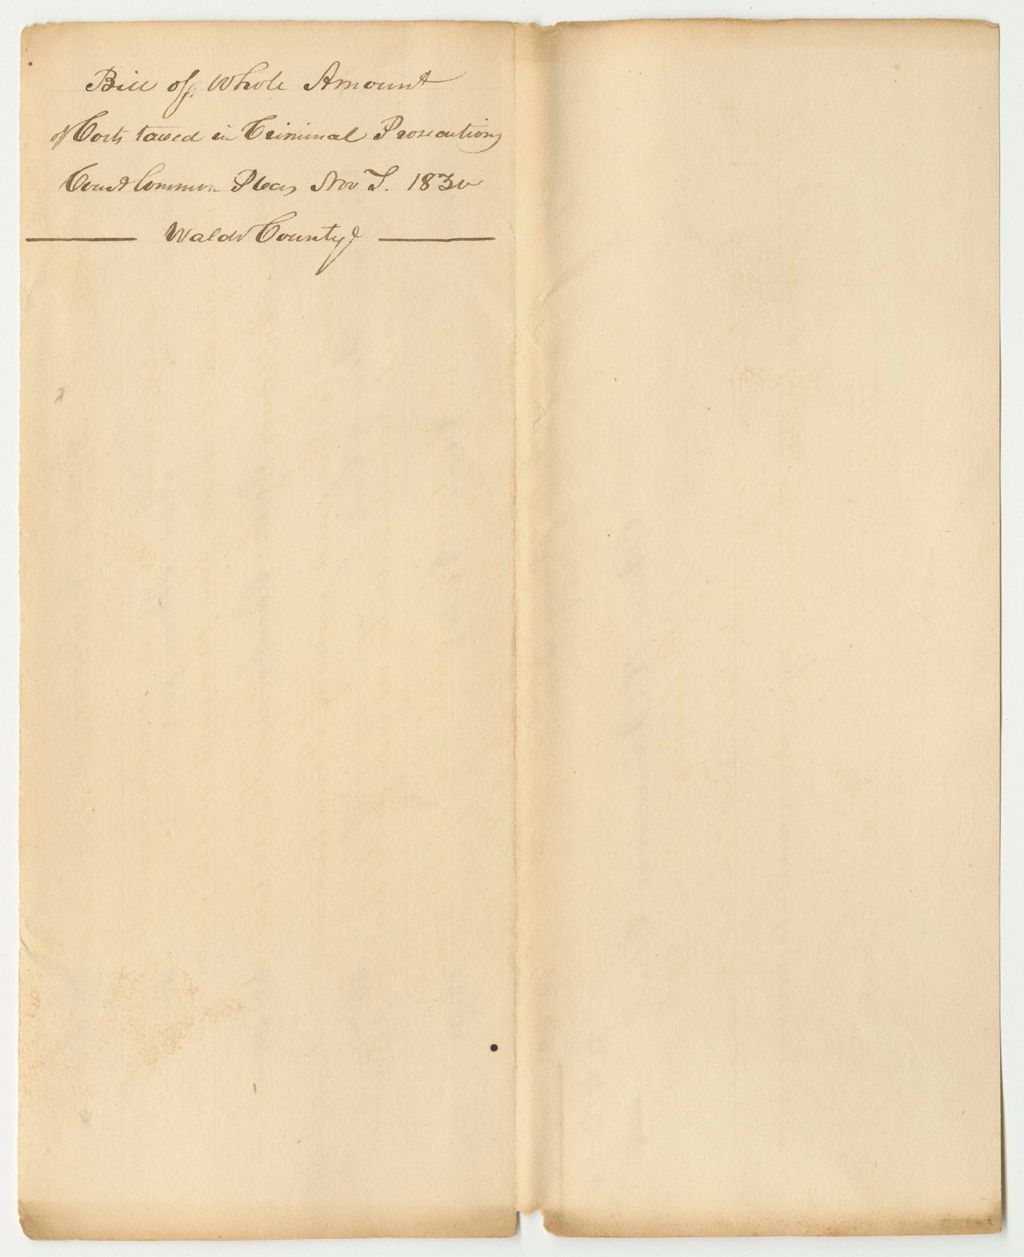 Bill of Whole Amount
of Costs taxed in Criminal Prosecutions
Court Common Pleas Nov T. 1830
Waldo County